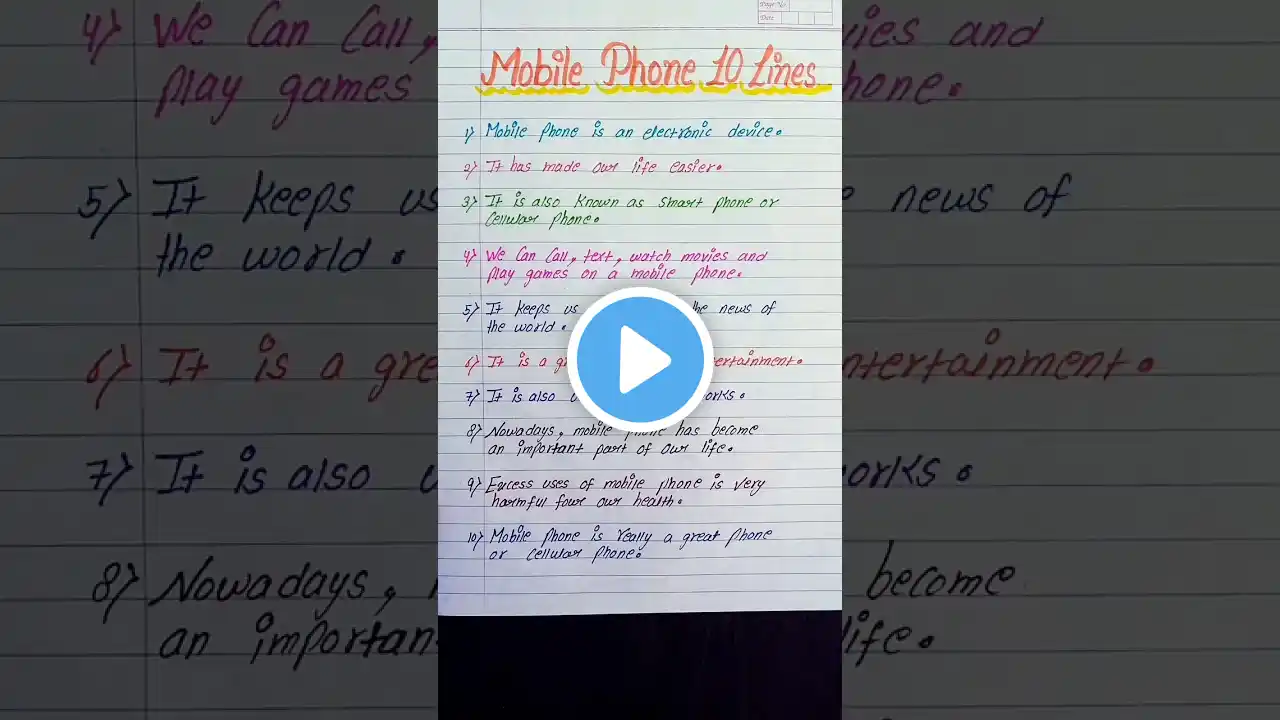 Page No.
Date
Mobile Phone 10 Lines
1) Mobile phone is an electronic device.
2) It has made our life easier.
3) It is also known as smart phone or
cellular phone.
4) We can call, text, watch movies and
play games on a mobile phone.
5) It keeps us the news of
the world.
6) It is a
7) It is also
8) Nowadays, mobile phone has become
an important part of our life.
9) Excess uses of mobile phone is very
harmful four our health.
10) Mobile phone is really a great phone
or cellular phone.
4) We Can Call,
play games
5) It keeps us
the world.
6) It is a
7) It is also
8) Nowadays,
an
and
news of
become